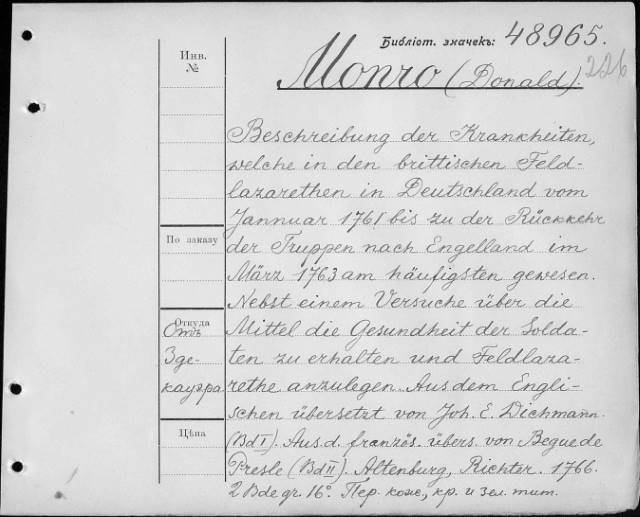 Библіот. значекъ: 48965.
Инв. №
Monro (Donald). 226
Beschreibung der Krankheiten,
welche in den brittischen Feld-
lazarethen in Deutschland vom
Jannuar 1761 bis zu der Rückkehr
По заказу
der Truppen nach Engelland im
März 1763 am häufigsten gewesen.
Nebst einem Versuche über die
Откуда
Отъ Здекауера
Mittel die Gesundheit der Solda-
ten zu erhalten und Feldlaza-
rethe anzulegen. Aus dem Engli-
schen übersetzt von Joh. E. Dichmann.
Цѣна
(Bd I). Aus d. französ. übers. von Begue de
Presle (Bd II). Altenburg, Richter. 1766.
2 Bde gr. 16°. Пер. кож., кр. и зел. тит.